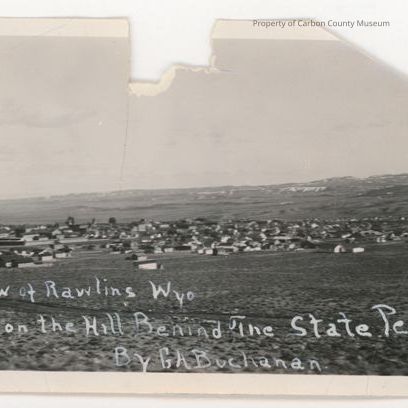 Property of Carbon County Museum
w of Rawlins Wyo
on the Hill Behind The State Pe
By GA Buchanan.